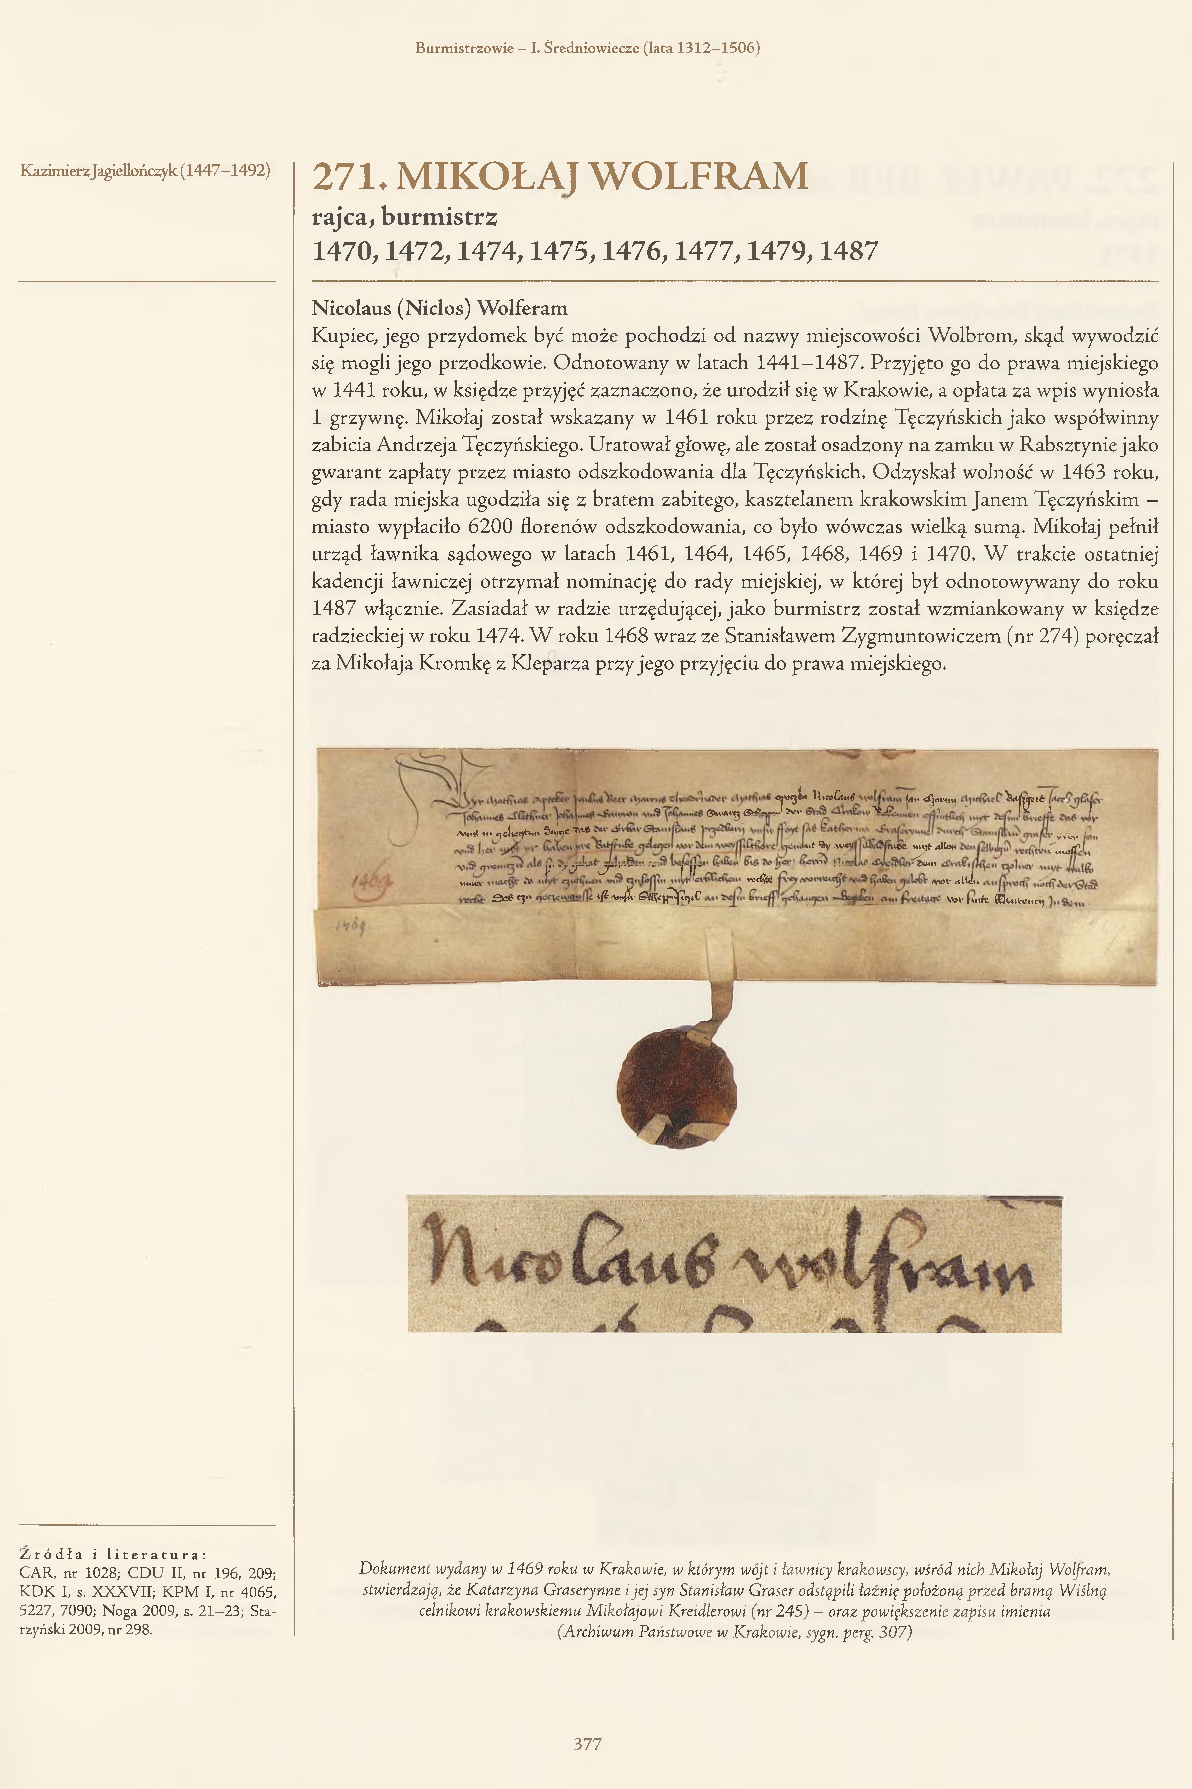 Burmistrzowie – I. Średniowiecze (lata 1312–1506)
Kazimierz Jagiellończyk (1447–1492)
271. MIKOŁAJ WOLFRAM
rajca, burmistrz
1470, 1472, 1474, 1475, 1476, 1477, 1479, 1487
Nicolaus (Niclos) Wolferam
Kupiec, jego przydomek być może pochodzi od nazwy miejscowości Wolbrom, skąd wywodzić
się mogli jego przodkowie. Odnotowany w latach 1441–1487. Przyjęto go do prawa miejskiego
w 1441 roku, w księdze przyjęć zaznaczono, że urodził się w Krakowie, a opłata za wpis wyniosła
1 grzywnę. Mikołaj został wskazany w 1461 roku przez rodzinę Tęczyńskich jako współwinny
zabicia Andrzeja Tęczyńskiego. Uratował głowę, ale został osadzony na zamku w Rabsztynie jako
gwarant zapłaty przez miasto odszkodowania dla Tęczyńskich. Odzyskał wolność w 1463 roku,
gdy rada miejska ugodziła się z bratem zabitego, kasztelanem krakowskim Janem Tęczyńskim –
miasto wypłaciło 6200 florenów odszkodowania, co było wówczas wielką sumą. Mikołaj pełnił
urząd ławnika sądowego w latach 1461, 1464, 1465, 1468, 1469 i 1470. W trakcie ostatniej
kadencji ławniczej otrzymał nominację do rady miejskiej, w której był odnotowywany do roku
1487 włącznie. Zasiadał w radzie urzędującej, jako burmistrz został wzmiankowany w księdze
radzieckiej w roku 1474. W roku 1468 wraz ze Stanisławem Zygmuntowiczem (nr 274) poręczał
za Mikołaja Kromkę z Kleparza przy jego przyjęciu do prawa miejskiego.
1469
1469
Nicolaus wolfram
Źródła i literatura:
CAR, nr 1028; CDU II, nr 196, 209;
KDK I, s. XXXVII; KPM I, nr 4065,
5227, 7090; Noga 2009, s. 21–23; Sta-
rzyński 2009, nr 298.
Dokument wydany w 1469 roku w Krakowie, w którym wójt i ławnicy krakowscy, wśród nich Mikołaj Wolfram,
stwierdzają, że Katarzyna Graserynne i jej syn Stanisław Graser odstąpili łaźnię położoną przed bramą Wiślną
celnikowi krakowskiemu Mikołajowi Kreidlerowi (nr 245) – oraz powiększenie zapisu imienia
(Archiwum Państwowe w Krakowie, sygn. perg. 307)
377